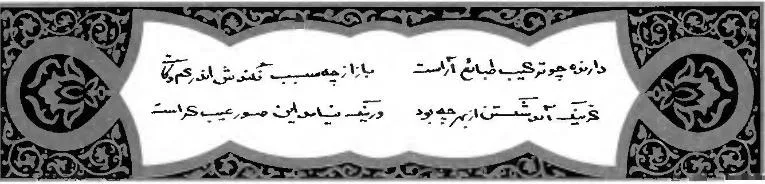 دارنده چو ترکیب طبائع آراست باز از چه سبب فکندش اندر کم و کاست
گر نیک آمد شکستن از بهر چه بود ور نیک نیامد این صور عیب کراست